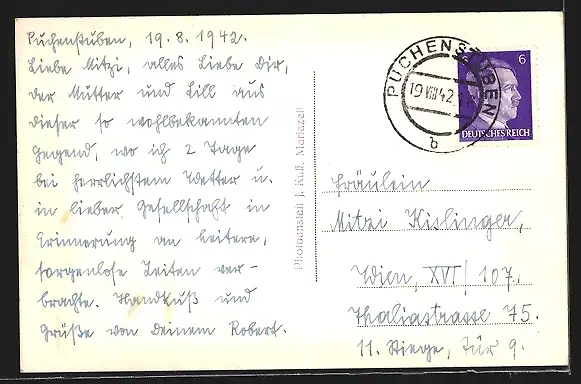 Puchenstuben, 19.8.1942.
Liebe Mitzi, alles Liebe Dir,
der Mutter und Lill aus
dieser so wohlbekannten
Gegend, wo ich 2 Tage
bei herrlichstem Wetter u.
in lieber Gesellschaft in
Erinnerung an heitere,
sorgenlose Zeiten ver-
brachte. Handkuß und
Grüße von deinem Robert.
Photoanstalt J. Kuß, Mariazell
PUCHENSTUBEN
19 VIII 42
b
6
DEUTSCHES REICH
Fräulein
Mitzi Kislinger,
Wien, XVI/107,
Thaliastrasse 75.
11. Stiege, Tür 9.